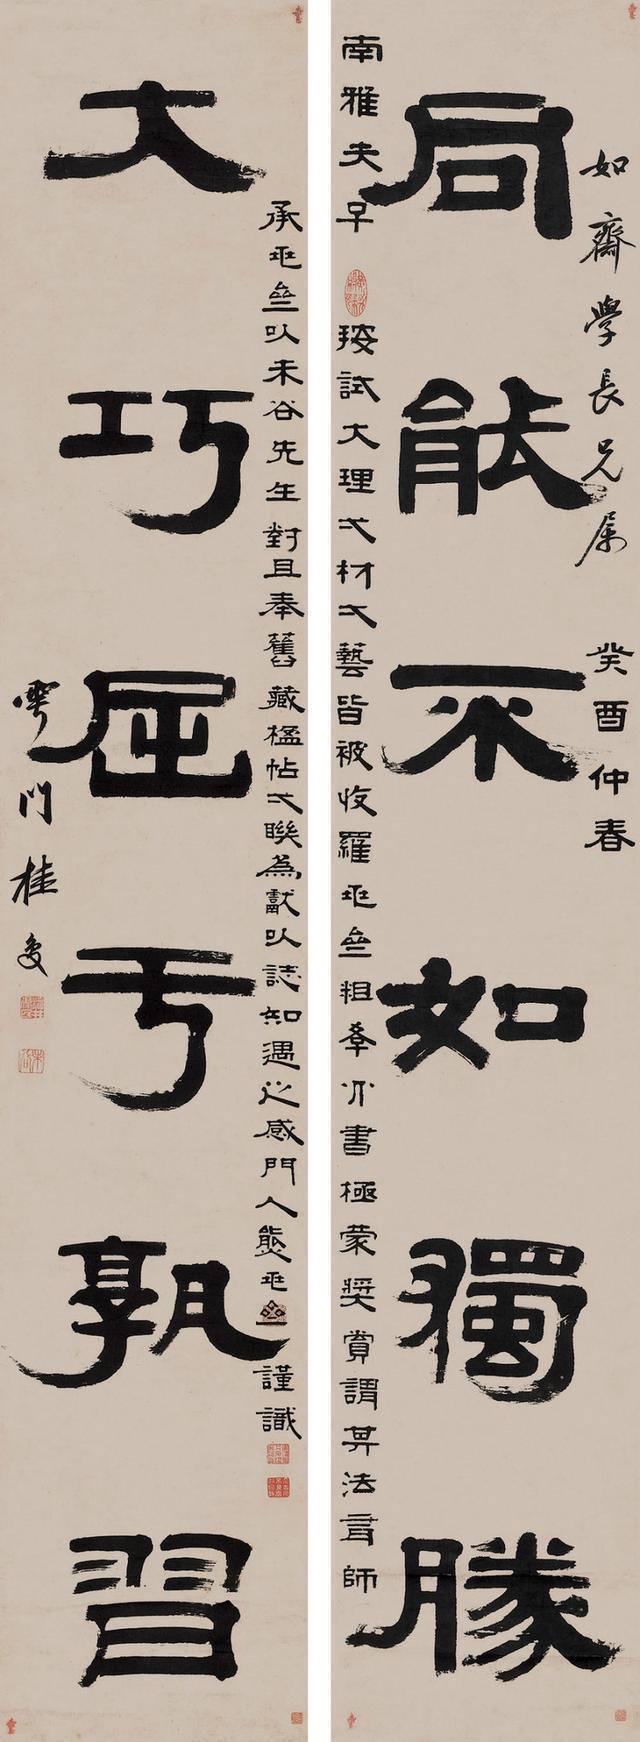 如齋學長兄屬 癸酉仲春
同能不如獨勝
南雅夫子 按試大理之材之藝皆被收羅 粗 書極蒙奬賞謂其法有師
承 以未谷先生對且奉舊藏楹帖之聯為獻以誌知遇之感門人熊 謹識
大巧屈亏孰習
雩門桂馥